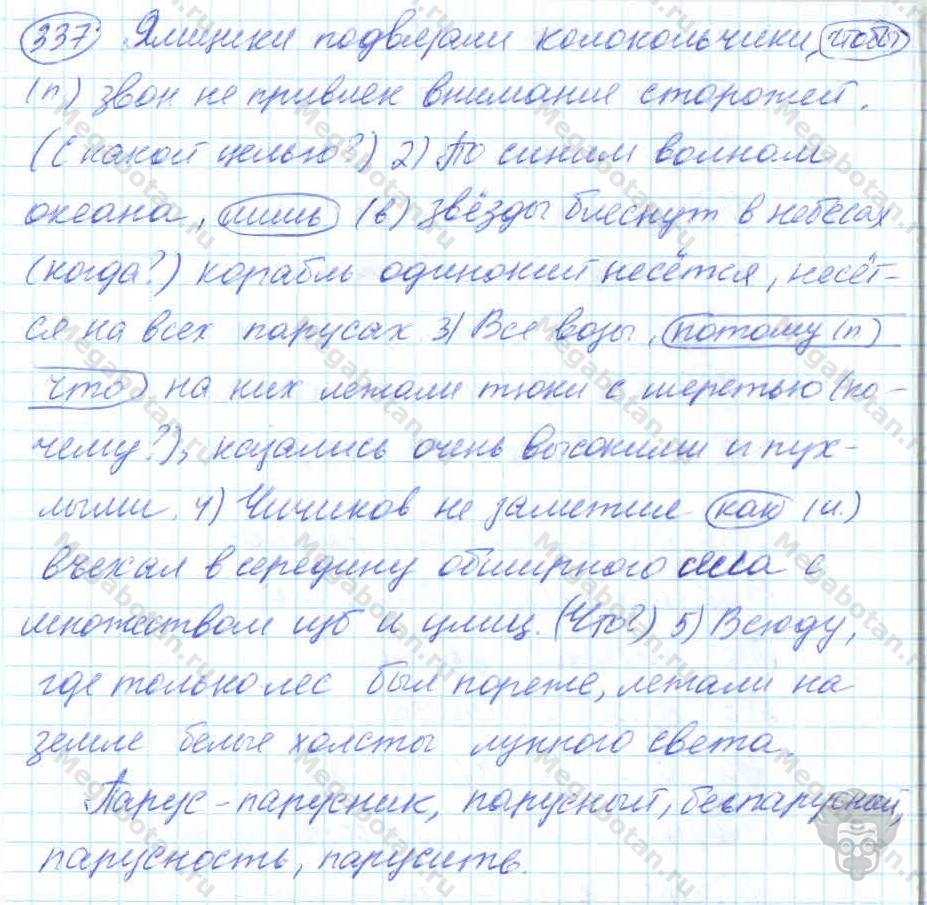 337. Ямщики подвязали колокольчики, чтобы
(п) звон не привлек внимание сторожей.
(С какой целью?) 2) По синим волнам
океана, лишь (в) звёзды блеснут в небесах
(когда?) корабль одинокий несётся, несёт-
ся на всех парусах. 3) Все возы, потому (п)
что на них лежали тюки с шерстью (по-
чему?), казались очень высокими и пух-
лыми. 4) Чичиков не заметил как (и.)
въехал в середину обширного села с
множеством изб и улиц. (Что?) 5) Всюду,
где только лес был пореже, лежали на
земле белые холсты лунного света.
Парус - парусник, парусный, беспарусный,
парусность, парусить.
Megabotan.ru